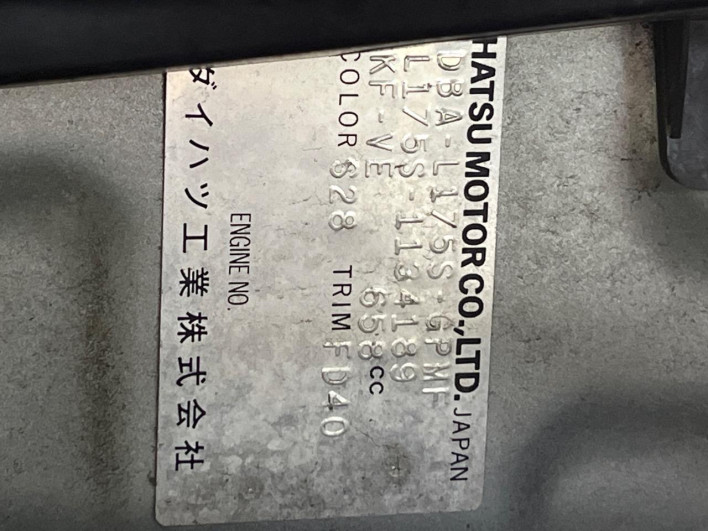 HATSU MOTOR CO.,LTD. JAPAN
DBA-L175S-GPMF
L175S-1134189
KF-VE 658cc
COLOR S28 TRIM FD40
ENGINE NO.
ダイハツ工業株式会社